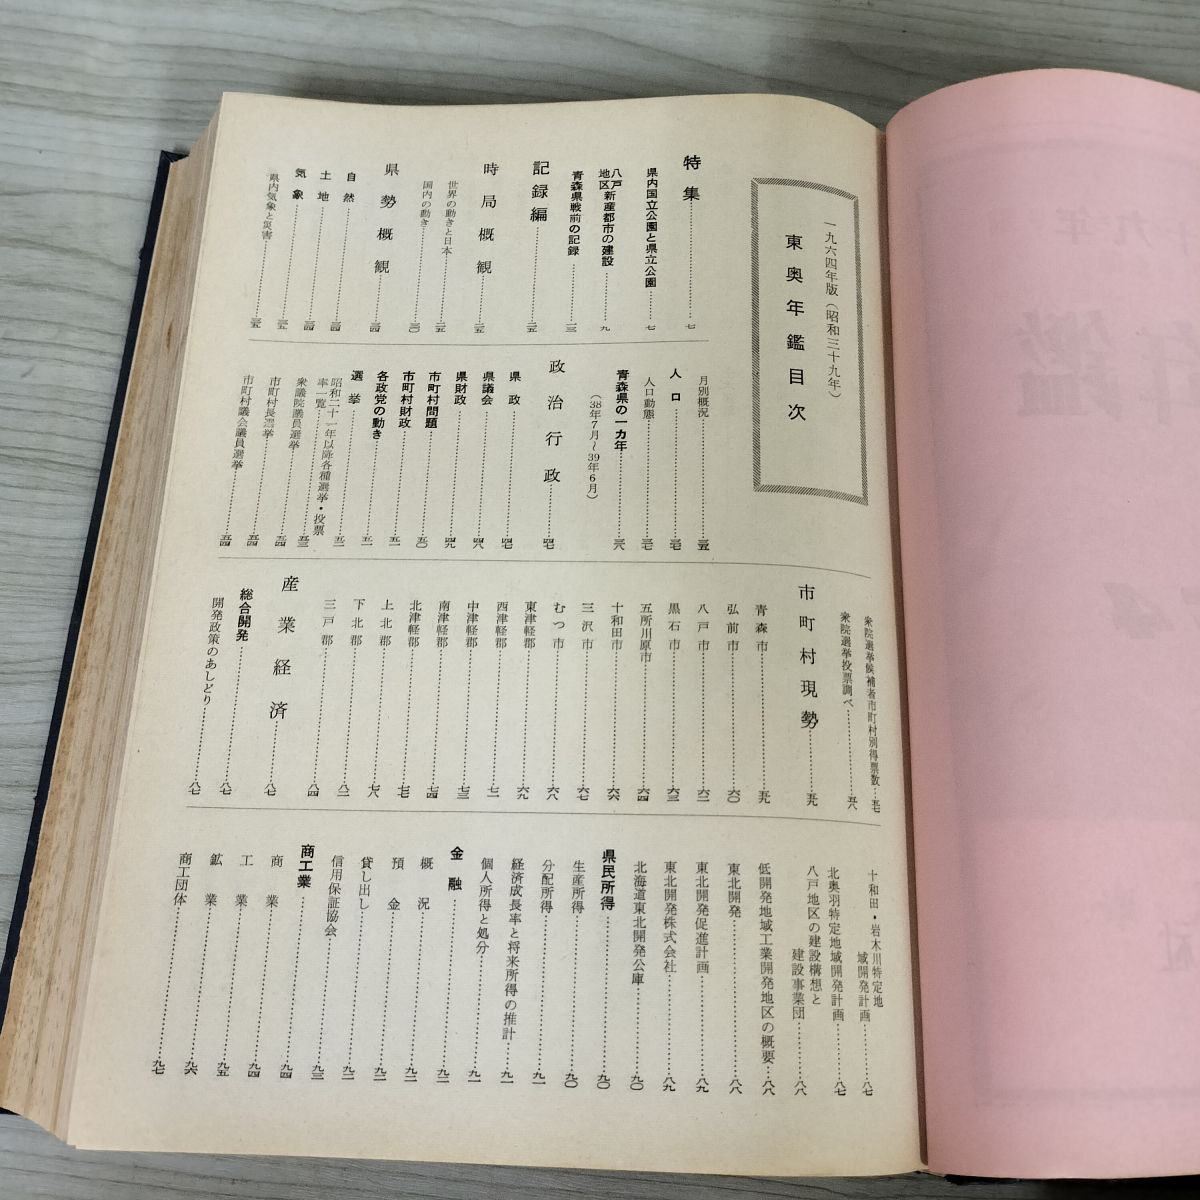 一九六四年版(昭和三十九年)
東奥年鑑目次
特集……七
県内国立公園と県立公園……七
八戸新産都市の建設
地区……九
青森県戦前の記録……一三
記録編……二五
時局概観……二五
世界の動きと日本……二五
国内の動き……三〇
県勢概観……三四
自然……三四
土地……三四
気象……三五
県内気象と災害……三五
月別概況……三五
人口……三七
人口動態……三七
青森県の一カ年……三八
(38年7月〜39年6月)
政治行政……四七
県政……四七
県議会……四八
県財政……四九
市町村問題……五〇
市町村財政……五一
各政党の動き……五一
選挙……五二
昭和二十一年以降各種選挙・投票
率一覧……五二
衆議院議員選挙……五三
市町村長選挙……五四
市町村議会議員選挙……五四
衆院選挙候補者市町村別得票数……五七
衆院選挙投票調べ……五八
市町村現勢……五九
青森市……五九
弘前市……六〇
八戸市……六二
黒石市……六三
五所川原市……六四
十和田市……六六
三沢市……六七
むつ市……六八
東津軽郡……六九
西津軽郡……七一
中津軽郡……七三
南津軽郡……七四
北津軽郡……七七
上北郡……七八
下北郡……八二
三戸郡……八四
産業経済……八七
総合開発……八七
開発政策のあしどり……八七
十和田・岩木川特定地
域開発計画……八七
北奥羽特定地域開発計画……八七
八戸地区の建設構想と
建設事業団……八八
低開発地域工業開発地区の概要……八八
東北開発……八八
東北開発促進計画……八九
東北開発株式会社……八九
北海道東北開発公庫……九〇
県民所得……九〇
生産所得……九〇
分配所得……九一
経済成長率と将来所得の推計……九一
個人所得と処分……九一
金融……九二
概況……九二
預金……九二
貸し出し……九二
信用保証協会……九三
商工業……九四
商業……九四
工業……九四
鉱業……九五
商工団体……九六
……九七